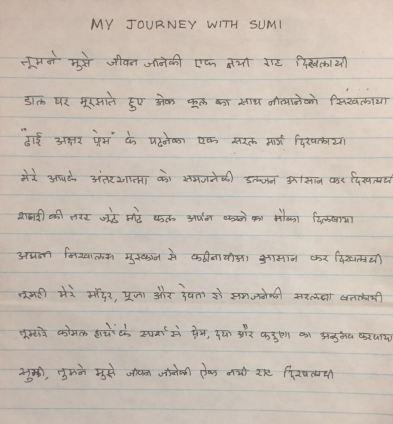 MY JOURNEY WITH SUMI
तूमने मुझे जीवन जीनेकी एक नयी राह दिखलायी
डाल पर मूरझाते हुए अेक फूल का साथ नीभानेको सिखलाया
"ढाई अक्षर प्रेम" के पढनेका एक सरल मार्ग दिखलाया
मेरे आपके अंतरआत्मा को समजनेकी उलजन आसान कर दिखलायी
शबरी की तरह जूठे मीठे फल अर्पन करने का मौका दिलवाया
अपनी निखालस मुस्कान से कठीनाईया आसान कर दिखलायी
तूमही मेरे मंदिर, पूजा और देवता हो समजनेकी सरलता बतलायी
तूमारे कोमल हाथों के स्पर्श से प्रेम, दया और करुणा का अनुभव करवाया
सुमी, तूमने मुझे जीवन जीनेकी ऐक नयी राह दिखलायी